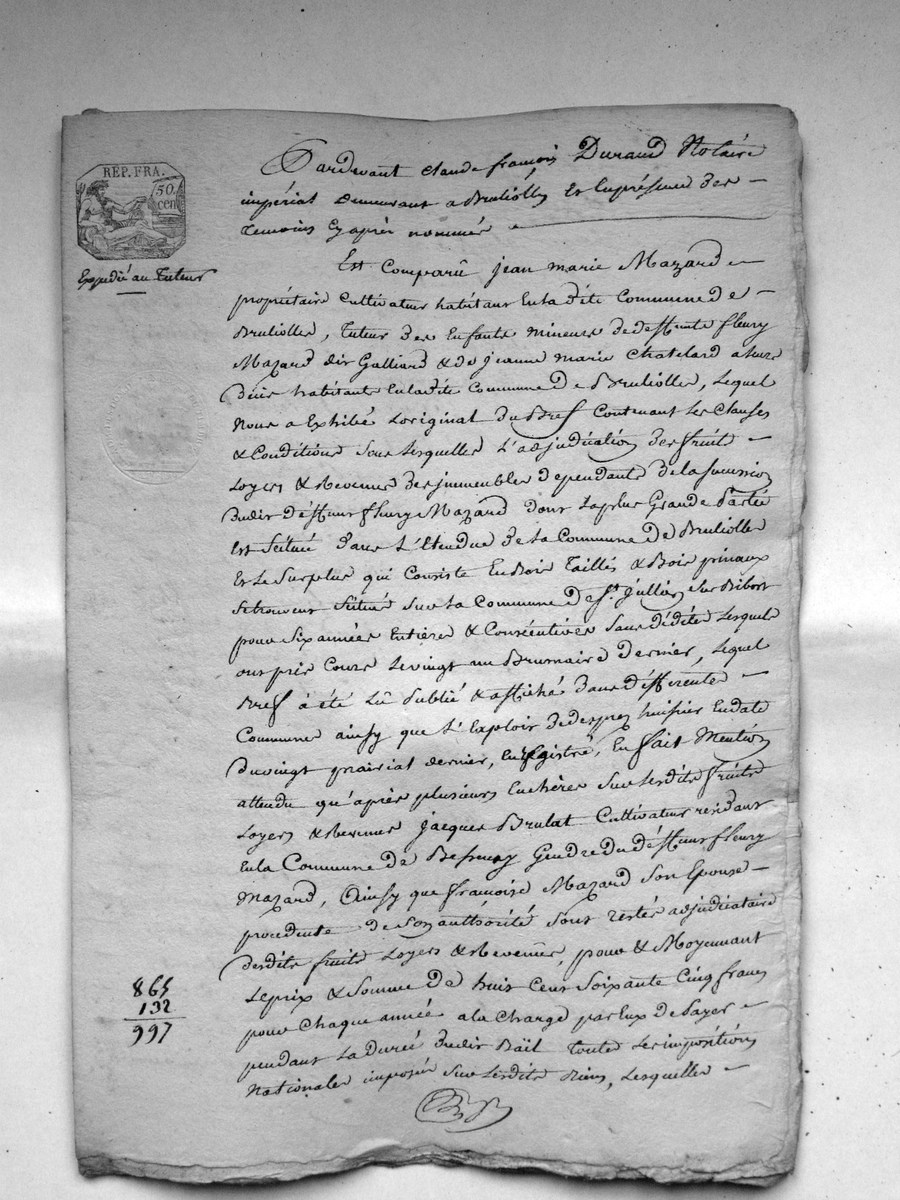 REP. FRA.
50. cen
Expedié au Tuteur
Pardevant claude françois Durand Notaire
impérial demeurant a Brulioles Et En présence des
temoins Cy après nommés
Est Comparû jean marie Mazard
propriétaire Cultivateur habitant En la dite Commune de
Brulioller, Tuteur des Enfants mineurs de deffunts fleury
Mazard dit Galliard & de jeanne marie Chatelard a leurs
déces habitants En ladite Commune de Brulioller, Lequel
Nous a Exhibé Loriginal du Bref Contenant Les Clauses
& Conditions sous Lesquelles L'adjudication des fruits
Loyers & Revenus des jmmeubles dependants de la succession
dudit deffunt fleury Mazard dont La plus Grande Partie
Est scituée dans L'Etendue de La Commune de Brulioller
Et Le Surplus qui Consiste En Bois Taillés & Bois pinaux
se trouvent scitués sur La Commune de St. Jullien sur Bibost
pour six années Entières & Consécutives sans dédite Lesquels
ont pris Cours Le vingt un Brumaire dernier, Lequel
Bref à été Lû Publié & affiché dans différentes
Commune ainsy que L'Exploit de desprez huissier En date
du vingt prairial dernier, Enregistré, En fait Mention
attendu qu'après plusieurs Enchères sur Lesdits fruits
Loyers & Revenus jacques Brulat Cultivateur résidant
En La Commune de Bessenay Gendre du deffunt fleury
Mazard, Ainsy que françoise Mazard son Epouse
procedente de son authorité sont restés adjudicataire
desdits fruits Loyers & Revenus, pour & Moyennant
Le prix & Somme de huit Cent Soixante Cinq francs
pour Chaque année a la Charge par Eux de Payer
pendant La Durée dudit Bail toutes Les impositions
Nationales imposées sur Lesdits Biens, Lesquelles
865
132
997